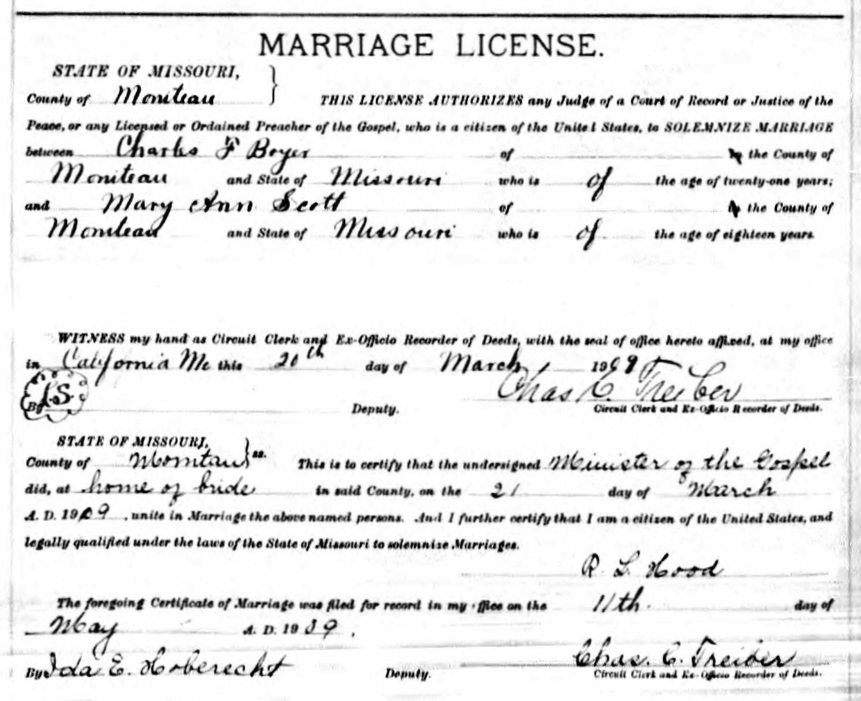 MARRIAGE LICENSE.
STATE OF MISSOURI, }
County of Moniteau THIS LICENSE AUTHORIZES any Judge of a Court of Record or Justice of the
Peace, or any Licensed or Ordained Preacher of the Gospel, who is a citizen of the United States, to SOLEMNIZE MARRIAGE
between Charles F Boyer of the County of
Moniteau and State of Missouri who is of the age of twenty-one years;
and Mary Ann Scott of the County of
Moniteau and State of Missouri who is of the age of eighteen years
WITNESS my hand as Circuit Clerk and Ex-Officio Recorder of Deeds, with the seal of office hereto affixed, at my office
in California Mo this 20th day of March 1909
LS Chas C. Treiber
By Deputy. Circuit Clerk and Ex-Officio Recorder of Deeds.
STATE OF MISSOURI, }
County of Moniteau ss. This is to certify that the undersigned Minister of the Gospel
did, at home of bride in said County, on the 21 day of March
A. D. 1909, unite in Marriage the above named persons. And I further certify that I am a citizen of the United States, and
legally qualified under the laws of the State of Missouri to solemnize Marriages.
R. L. Hood
The foregoing Certificate of Marriage was filed for record in my office on the 11th. day of
May A. D. 1909.
Chas. C. Treiber
By Ida E. Hoberecht Deputy. Circuit Clerk and Ex-Officio Recorder of Deeds.